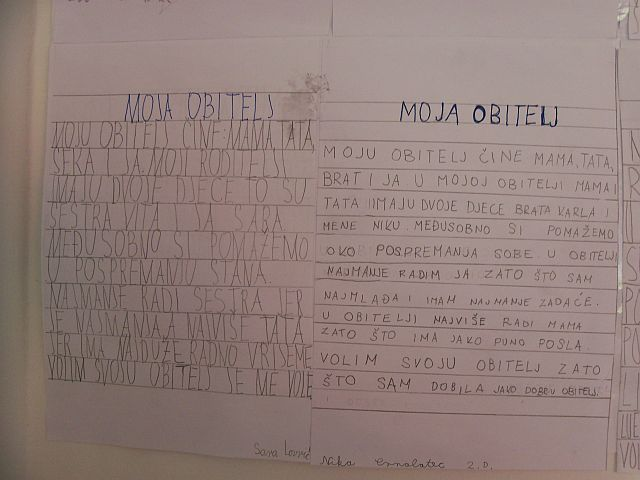 MOJA OBITELJ
MOJU OBITELJ ČINE: MAMA, TATA,
SEKA I JA. MOJI RODITELJI
IMAJU DVOJE DJECE TO SU
SESTRA VITA I JA SARA.
MEĐUSOBNO SI POMAŽEMO
U POSPREMANJU STANA.
NAJMANJE RADI SESTRA JER
JE NAJMANJA, A NAJVIŠE TATA
JER IMA NAJDUŽE RADNO VRIJEME
VOLIM SVOJU OBITELJ JE ME VOLE
Sara
MOJA OBITELJ
MOJU OBITELJ ČINE MAMA, TATA,
BRAT I JA U MOJOJ OBITELJI MAMA I
TATA IMAJU DVOJE DJECE BRATA KARLA I
MENE NIKU. MEĐUSOBNO SI POMAŽEMO
OKO POSPREMANJA SOBE. U OBITELJI
NAJMANJE RADIM JA ZATO ŠTO SAM
NAJMLAĐA I IMAM NAJMANJE ZADAĆE.
U OBITELJI NAJVIŠE RADI MAMA
ZATO ŠTO IMA JAKO PUNO POSLA.
VOLIM SVOJU OBITELJ ZATO
ŠTO SAM DOBILA JAKO DOBRU OBITELJ.
Nika 2. D.